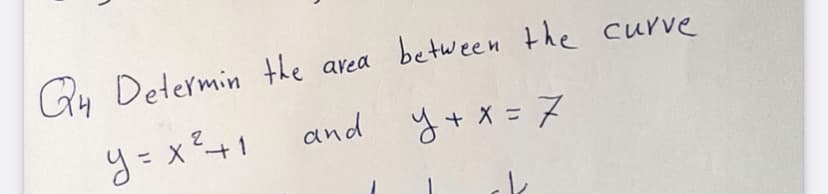 Q4 Determin the area between the curve
y = x²+1 and y + x = 7